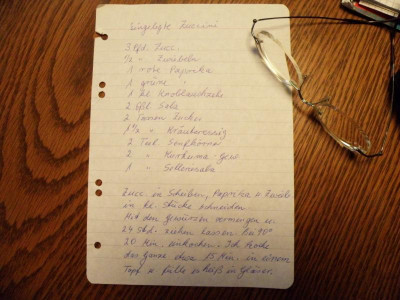 Eingelegte Zucchini
3 Pfd. Zucc.
1/2 " Zwiebeln
1 rote Paprika
1 grüne "
1 kl. Knoblauchzehe
2 Eßl. Salz
2 Tassen Zucker
1 1/2 " Kräuteressig
2 Teel. Senfkörner
2 " Kurkuma-Gew.
1 " Selleriesalz
Zucc. in Scheiben, Paprika + Zwieb.
in kl. Stücke schneiden
Mit den Gewürzen vermengen u.
24 Std. ziehen lassen. Bei 90°
20 Min. einkochen. Ich koche
das ganze ca. 15 Min. in einem
Topf u. fülle es heiß in Gläser.